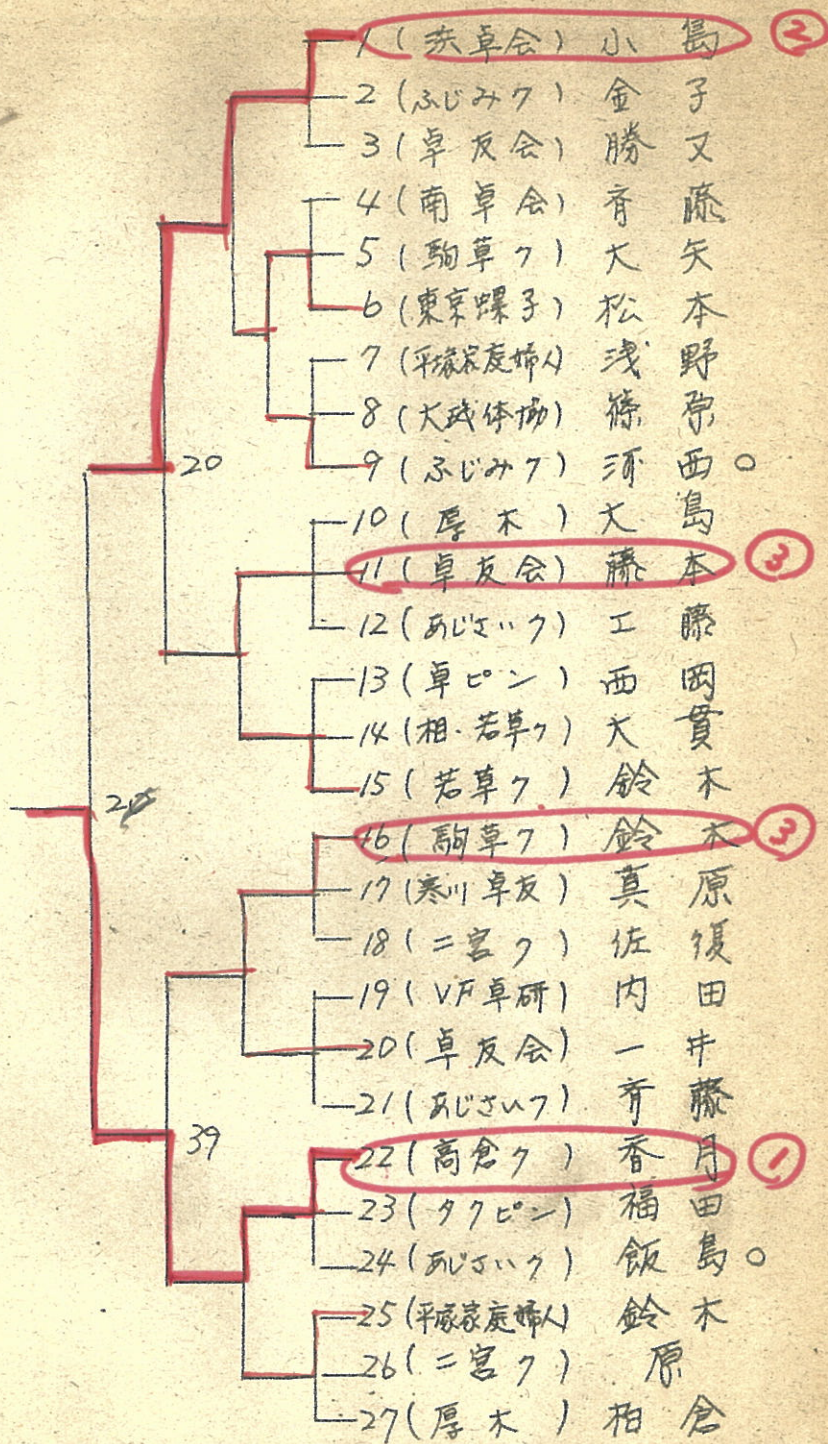 1 ( 卓会) 小島 ②
2 (ふじみク) 金子
3 (卓友会) 勝又
4 (南卓会) 斉藤
5 (駒草ク) 大矢
6 (東京螺子) 松本
7 (平塚家庭婦人) 浅野
8 (大磯体協) 篠原
9 (ふじみク) 河西 ○
20
10 (厚木) 大島
11 (卓友会) 藤本 ③
12 (あじさいク) 工藤
13 (卓ピン) 西岡
14 (相・若草ク) 大貫
15 (若草ク) 鈴木
16 (駒草ク) 鈴木 ③
17 (寒川卓友) 真原
18 (二宮ク) 佐
19 (VF卓研) 内田
20 (卓友会) 一井
21 (あじさいク) 斉藤
39
22 (高倉ク) 香月 ①
23 (タクピン) 福田
24 (あじさいク) 飯島 ○
25 (平塚家庭婦人) 鈴木
26 (二宮ク) 原
27 (厚木) 柏倉